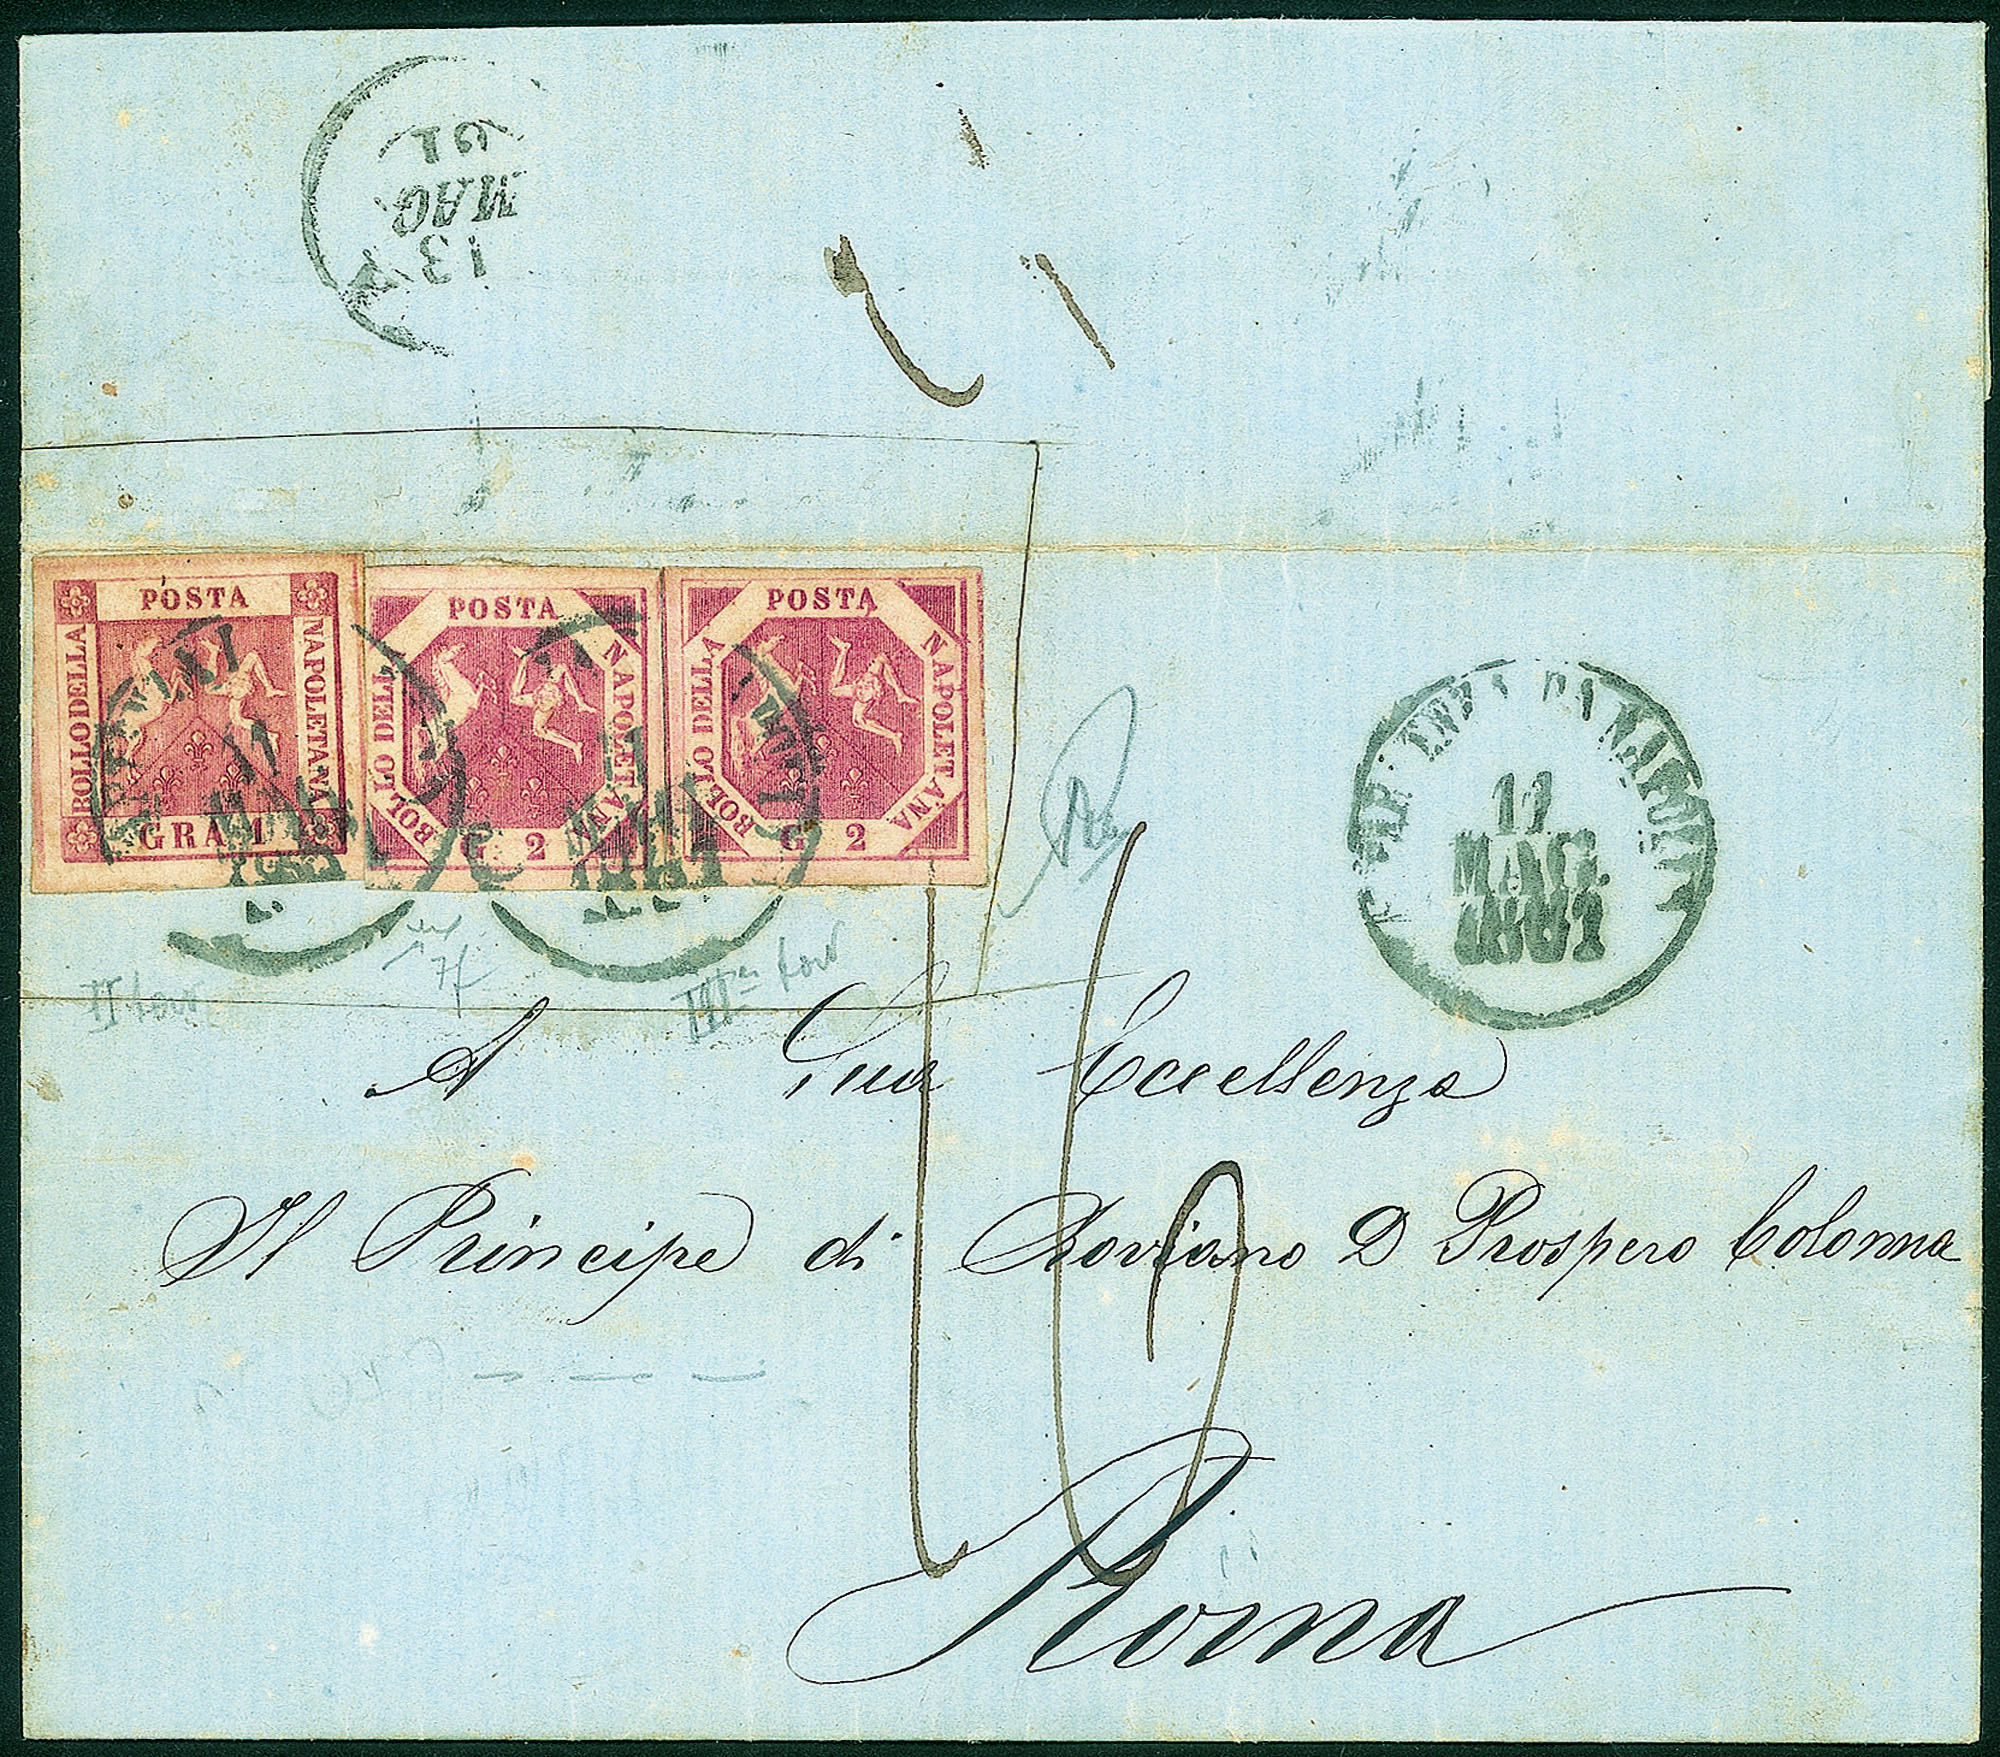 13
MAG.
61
POSTA
BOLLO DELLA
NAPOLETANA
GRA 1
POSTA
BOLLO DELLA
NAPOLETANA
G 2
POSTA
BOLLO DELLA
NAPOLETANA
G 2
11
MAG.
1861
PARTENZA DA NAPOLI
11
MAG.
1861
A Sua Eccellenza
Il Principe di Roviano D Prospero Colonna
Roma